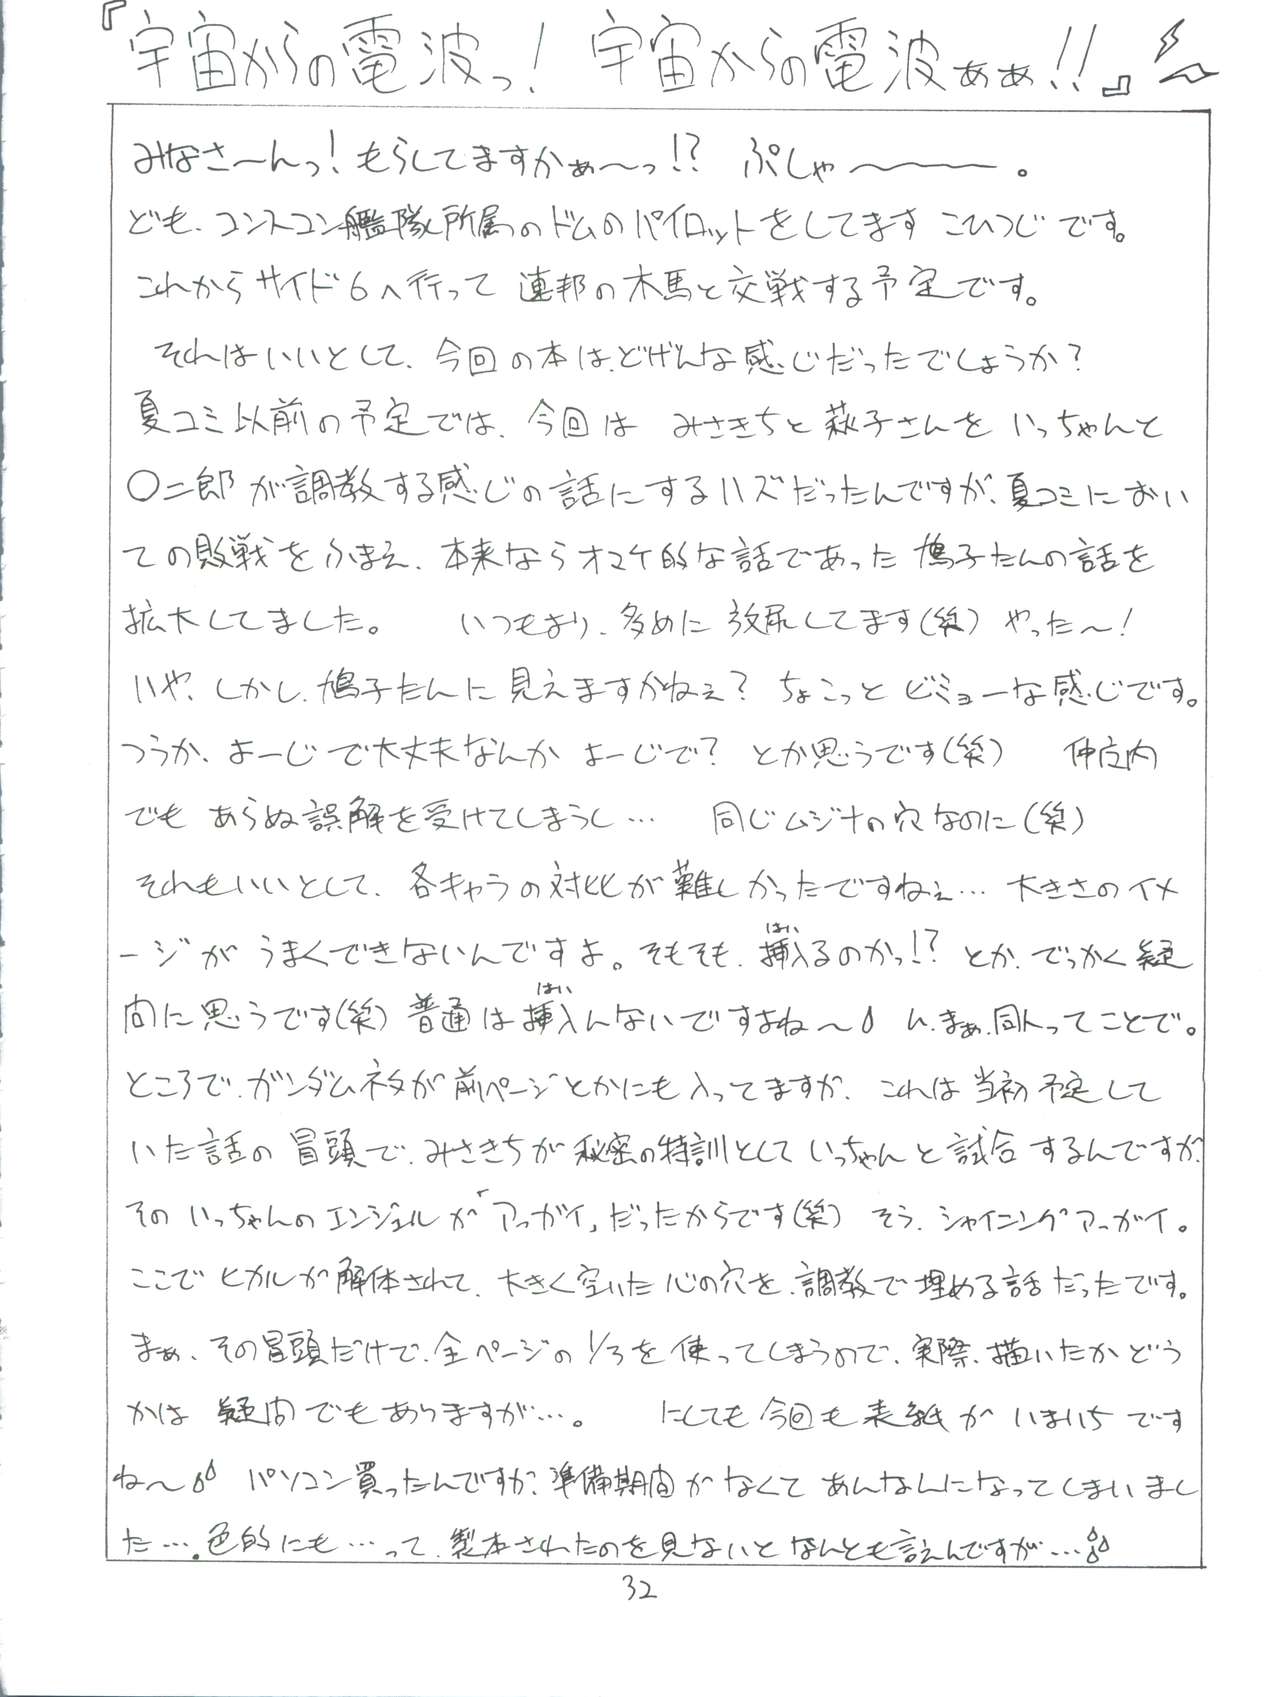 『宇宙からの電波っ! 宇宙からの電波ぁぁ!!』
みなさ〜んっ! もらしてますかぁ〜っ!? ぷしゃ〜〜。
ども、コンスコン艦隊所属のドムのパイロットをしてます こひつじです。
これからサイド6へ行って 連邦の木馬と交戦する予定です。
それはいいとして、今回の本は、どげんな感じだったでしょうか?
夏コミ以前の予定では、今回は みさきちと萩子さんを いっちゃんと
〇二郎が調教する感じの話にするハズだったんですが、夏コミにおい
ての敗戦をふまえ、本来ならオマケ的な話であった 鳩子たんの話を
拡大してました。 いつもより、多めに放尿してます(笑) やった〜!
いや、しかし、鳩子たんに見えますかねぇ? ちょこっと ビミョーな感じです。
つうか、まーじで大丈夫なんか まーじで? とか思うです(笑) 仲庄内
でも あらぬ誤解を受けてしまうし… 同じムジナの穴なのに(笑)
それもいいとして、各キャラの対比が難しかったですねぇ… 大きさのイメ
ージが うまくできないんですよ。そもそも、挿入るのかっ!? とか、でっかく疑
はい
問に思うです(笑) 普通は挿入んないですよね〜 ん、まぁ、同人ってことで。
はい
ところで、ガンダムネタが前ページとかにも入ってますが、これは当初予定して
いた話の冒頭で、みさきちが秘密の特訓としていっちゃんと試合するんですが、
そのいっちゃんのエンジェルが「アッガイ」だったからです(笑) そう、シャイニングアッガイ。
ここでヒカルが解体されて、大きく空いた心の穴を、調教で埋める話だったです。
まぁ、その冒頭だけで、全ページの1/3を使ってしまうので、実際、描いたかどう
かは疑問でもありますが…。 にしても今回も表紙がいまいちです
ね〜 パソコン買ったんですが、準備期間がなくて あんなんになってしまいまし
た…。色的にも…って、製本されたのを見ないとなんとも言えんですが…
32